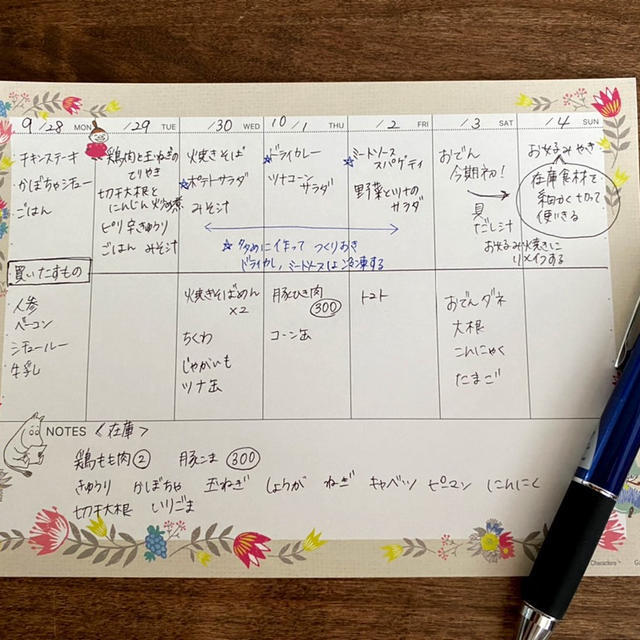 9/28 MON /29 TUE /30 WED 10/1 THU /2 FRI /3 SAT /4 SUN
チキンステーキ
かぼちゃシチュー
ごはん
鶏肉と玉ねぎの
てりやき
切干大根と
にんじん炒め煮
ピリ辛きゅうり
ごはん みそ汁
焼きそば
☆ポテトサラダ
みそ汁
☆ドライカレー
ツナコーン
サラダ
☆ミートソース
スパゲティ
野菜とツナの
サラダ
おでん
今期初!
具
だし汁
お好み焼きに
リメイクする
お好みやき
在庫食材で
細かく切って
使いきる
☆多めに作って つくりおき
ドライカレー、ミートソースは冷凍する
買いたすもの
人参
ベーコン
シチュールー
牛乳
焼きそばめん
×2
ちくわ
じゃがいも
ツナ缶
豚ひき肉
300
コーン缶
トマト
おでんダネ
大根
こんにゃく
たまご
NOTES <在庫>
鶏もも肉② 豚こま 300
きゅうり かぼちゃ 玉ねぎ しょうが ねぎ キャベツ ピーマン にんにく
切干大根 いりごま
Characters